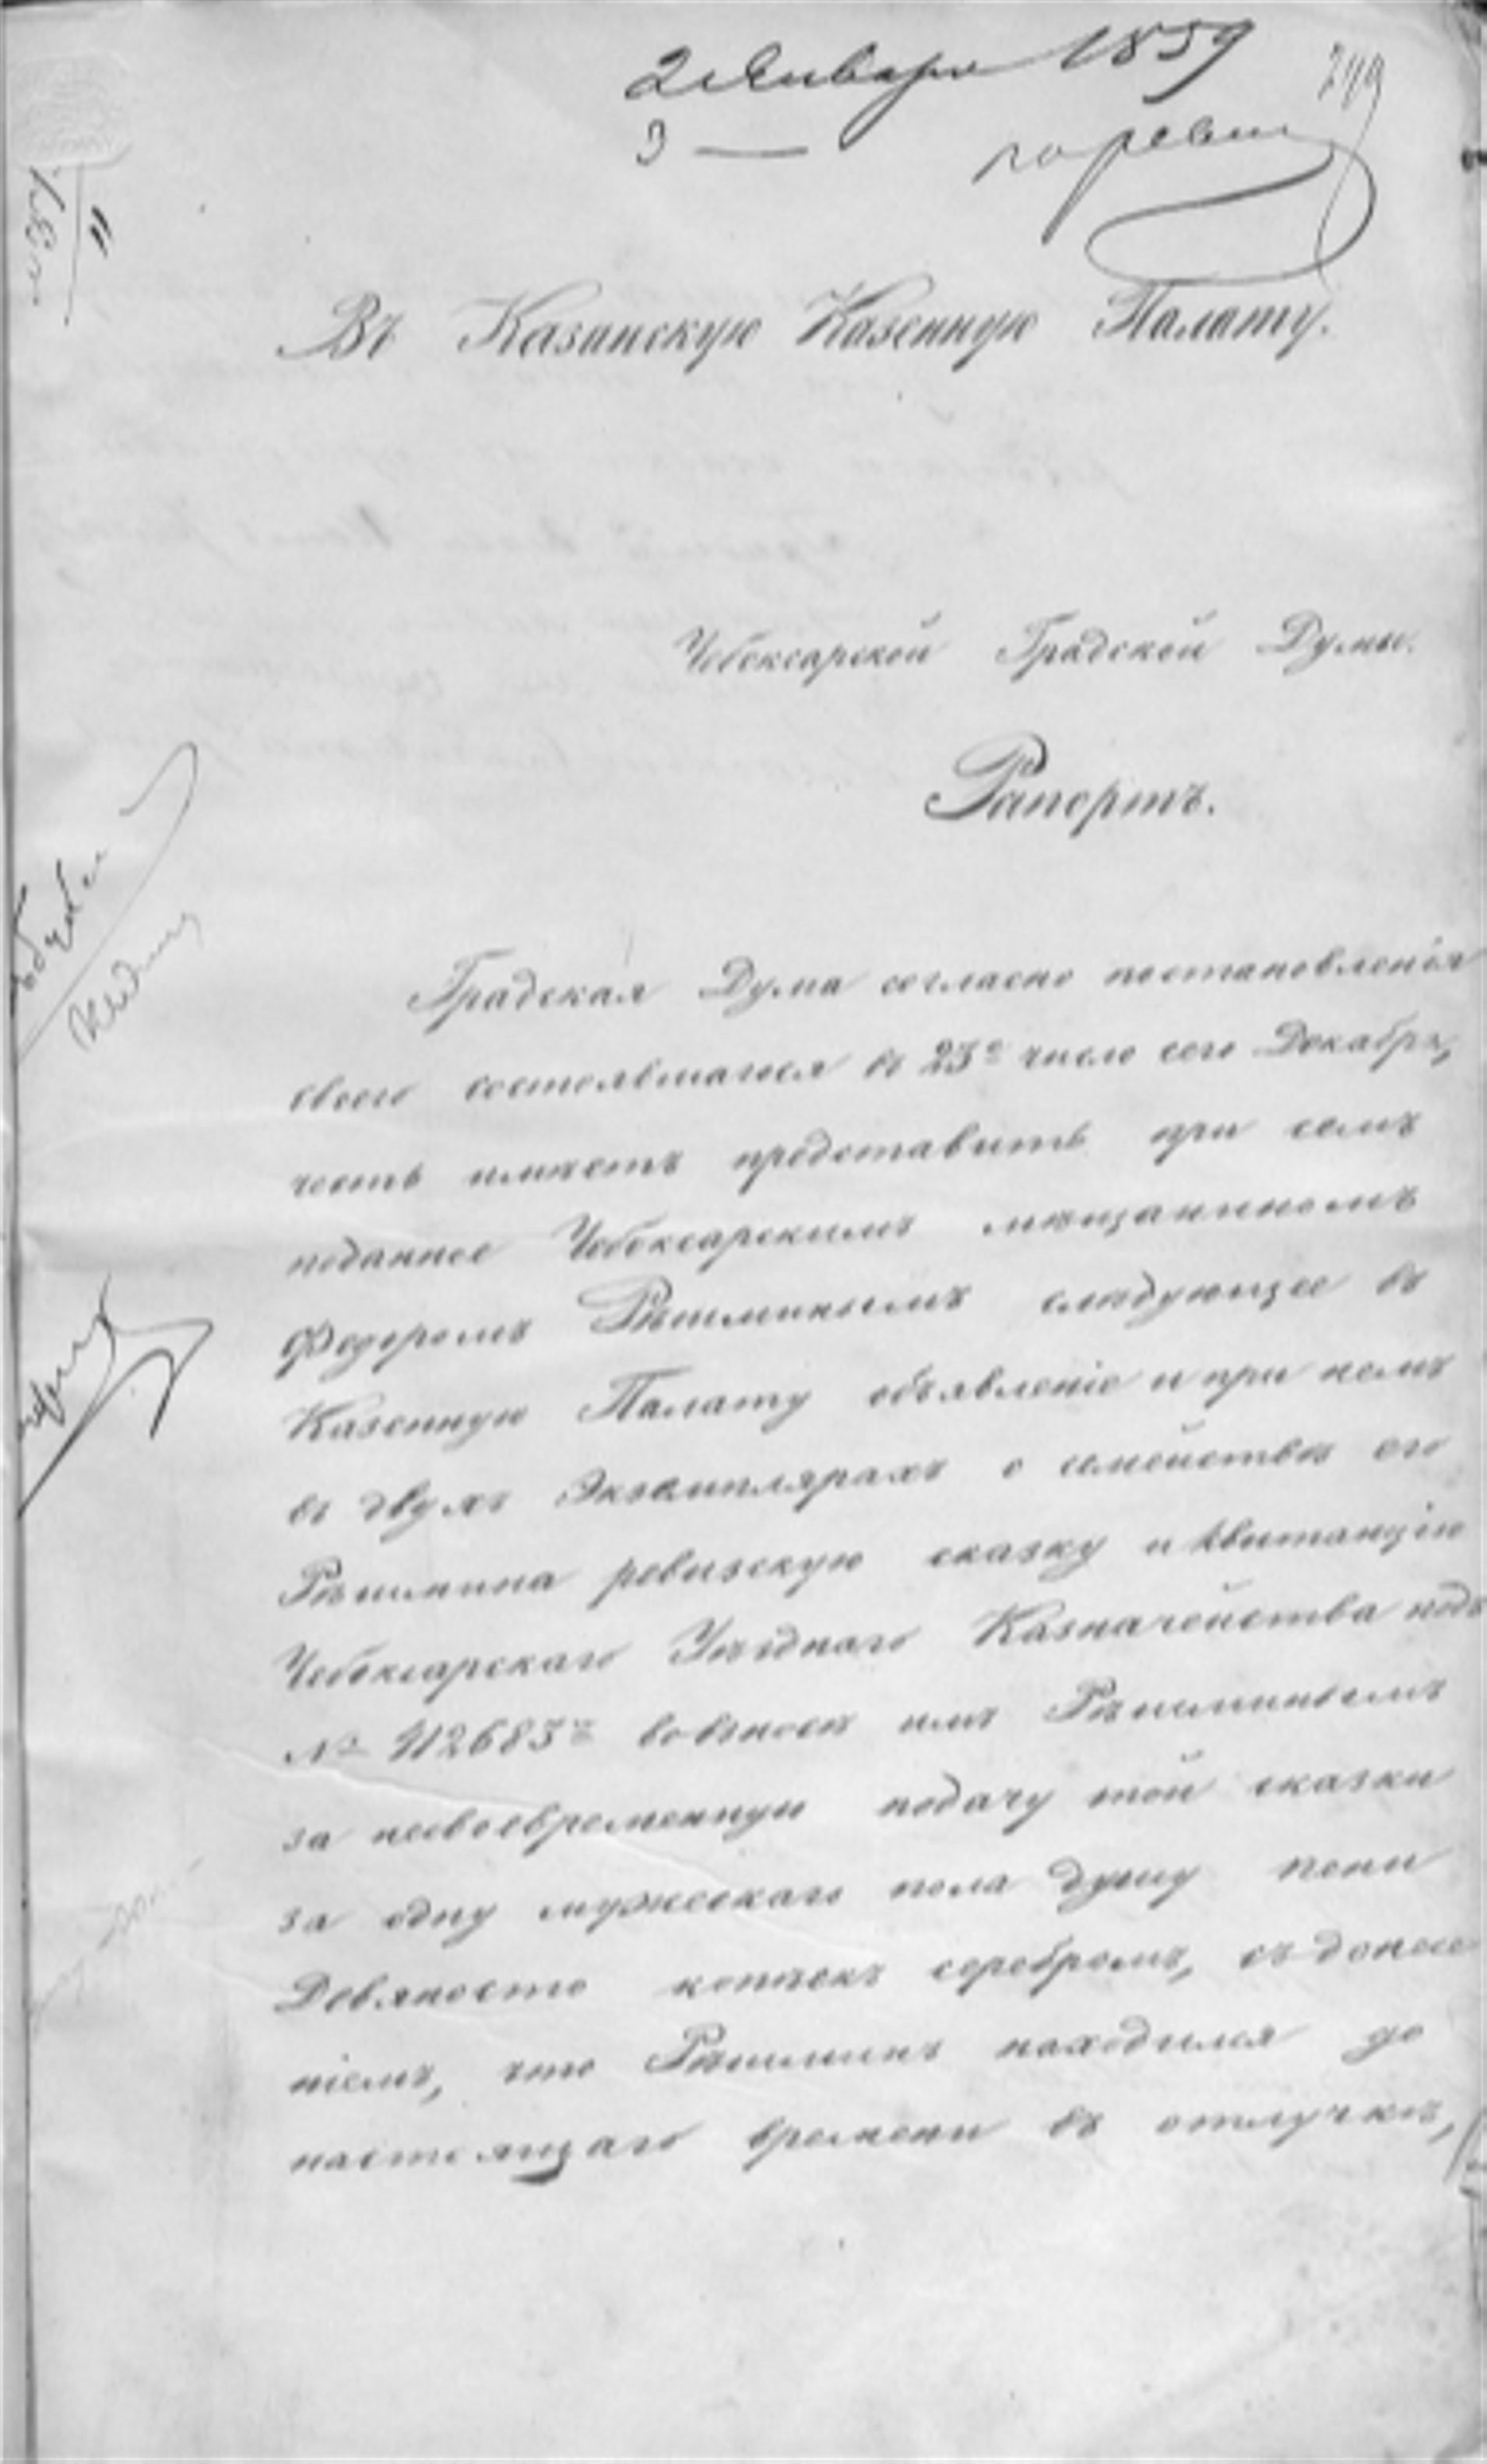 2 Января 1859
3 —
Въ Казанскую Казенную Палату.
Чебоксарской Градской Думы.
Рапортъ.
Градская Дума согласно постановленія
своего состоявшагося въ 23е число сего Декабря,
честь имѣетъ представить при семъ
поданное Чебоксарскимъ мѣщаниномъ
Федоромъ Рѣшминымъ слѣдующее въ
Казенную Палату объявленіе и при немъ
въ двухъ экземплярахъ о семействѣ его
Рѣшмина ревизскую сказку и квитанцію
Чебоксарскаго Уѣзднаго Казначейства подъ
№ 112683 во взносѣ имъ Рѣшминымъ
за несвоевременную подачу той сказки
за одну мужескаго пола душу пени
Девяносто копѣекъ серебромъ, съ донесе
ніемъ, что Рѣшминъ находился до
настоящаго времени въ отлучкѣ,